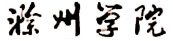 滁州学院